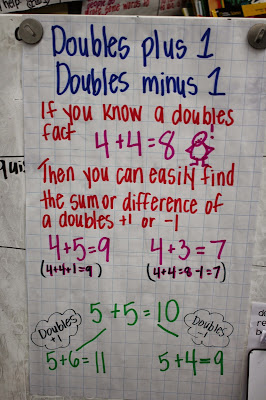 help
Doubles plus 1
Doubles minus 1
If you know a doubles
fact
4+4=8
Then you can easily find
the sum or difference of
a doubles +1 or -1
4+5=9 4+3=7
(4+4+1=9) (4+4=8-1=7)
5+5=10
Doubles +1
Doubles -1
5+6=11 5+4=9